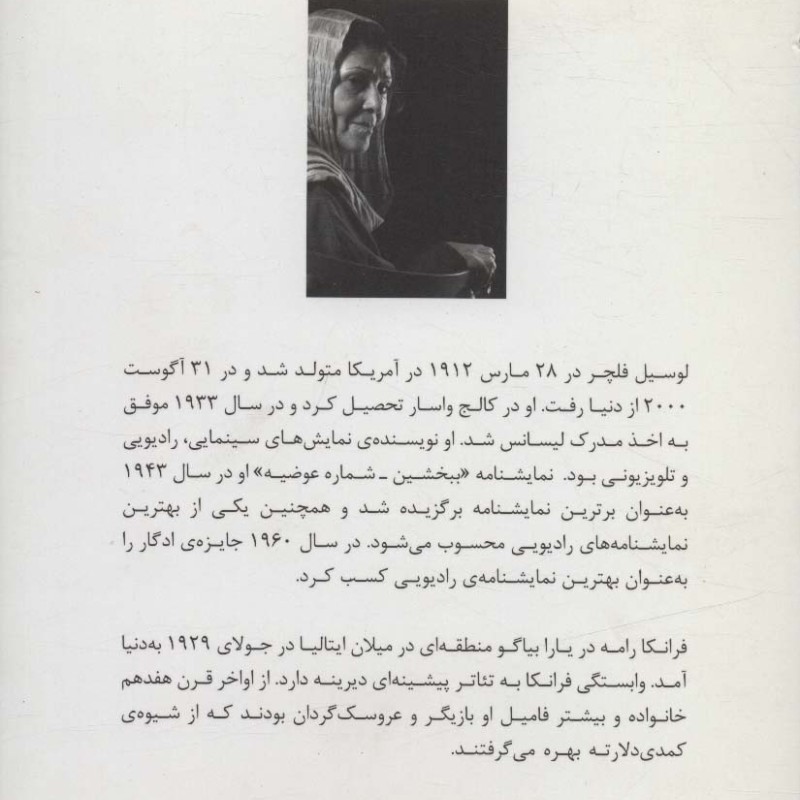 لوسیل فلچر در ۲۸ مارس ۱۹۱۲ در آمریکا متولد شد و در ۳۱ آگوست
۲۰۰۰ از دنیا رفت. او در کالج واسار تحصیل کرد و در سال ۱۹۳۳ موفق
به اخذ مدرک لیسانس شد. او نویسنده‌ی نمایش‌های سینمایی، رادیویی
و تلویزیونی بود. نمایشنامه «ببخشین ـ شماره عوضیه» او در سال ۱۹۴۳
به‌عنوان برترین نمایشنامه برگزیده شد و همچنین یکی از بهترین
نمایشنامه‌های رادیویی محسوب می‌شود. در سال ۱۹۶۰ جایزه‌ی ادگار را
به‌عنوان بهترین نمایشنامه‌ی رادیویی کسب کرد.
فرانکا رامه در یارا بیاگو منطقه‌ای در میلان ایتالیا در جولای ۱۹۲۹ به‌دنیا
آمد. وابستگی فرانکا به تئاتر پیشینه‌ای دیرینه دارد. از اواخر قرن هفدهم
خانواده و بیشتر فامیل او بازیگر و عروسک‌گردان بودند که از شیوه‌ی
کمدی‌دلارته بهره می‌گرفتند.